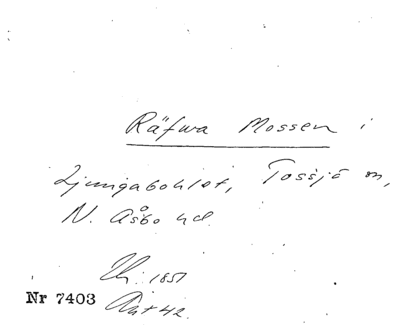 Räfwa Mossen i
Ljungabohlet, Tossjö sn,
N. Åsbo hd.
1851
Nr 7403